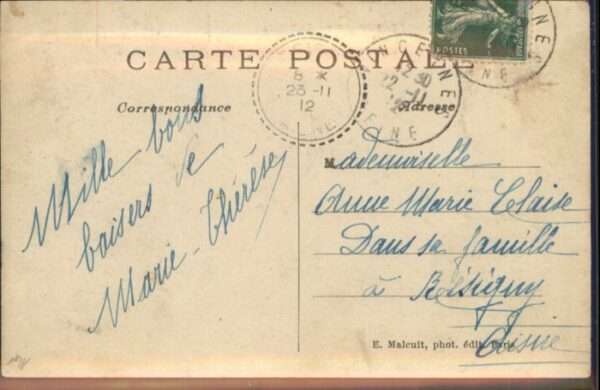 CARTE POSTALE
Correspondance
Adresse
8 *
23 -11
12
VINCENNES
2 30
22 -11
12
POSTES
Mille bons
baisers de
Marie-Thérèse
Mademoiselle
Anne Marie Claise
Dans sa famille
à Résigny
Aisne
E. Malcuit, phot. édit. Paris